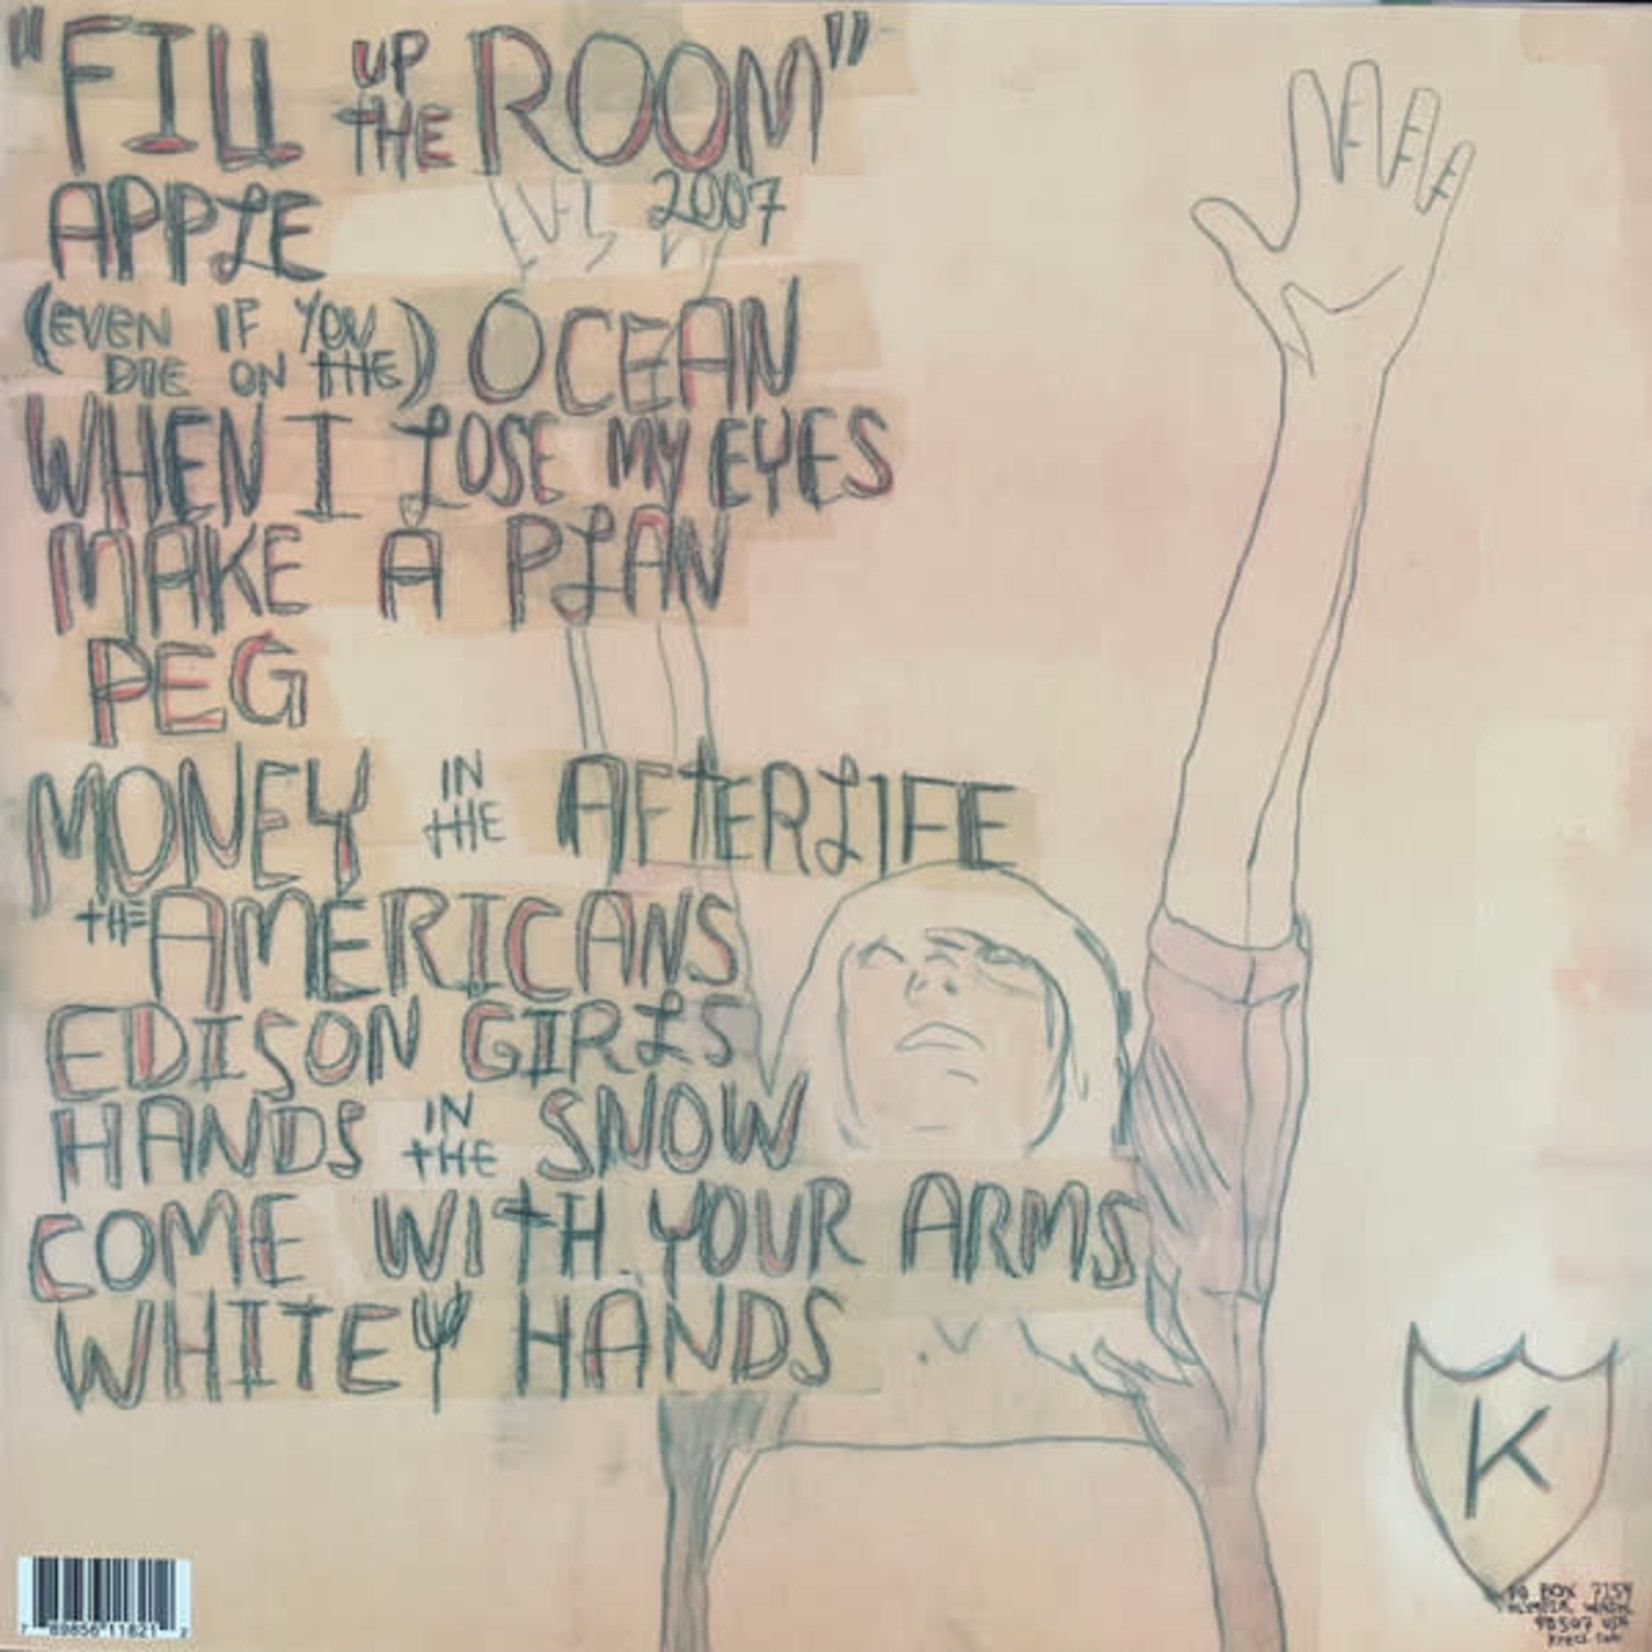 "FILL UP THE ROOM"
2007
APPLE
(EVEN IF YOU DIE ON THE) OCEAN
WHEN I LOSE MY EYES
MAKE A PLAN
PEG
MONEY IN THE AFTERLIFE
THE AMERICANS
EDISON GIRLS
HANDS IN THE SNOW
COME WITH YOUR ARMS
WHITEY HANDS
K
PO BOX 7154
98507 USA
7 89856 11821 2